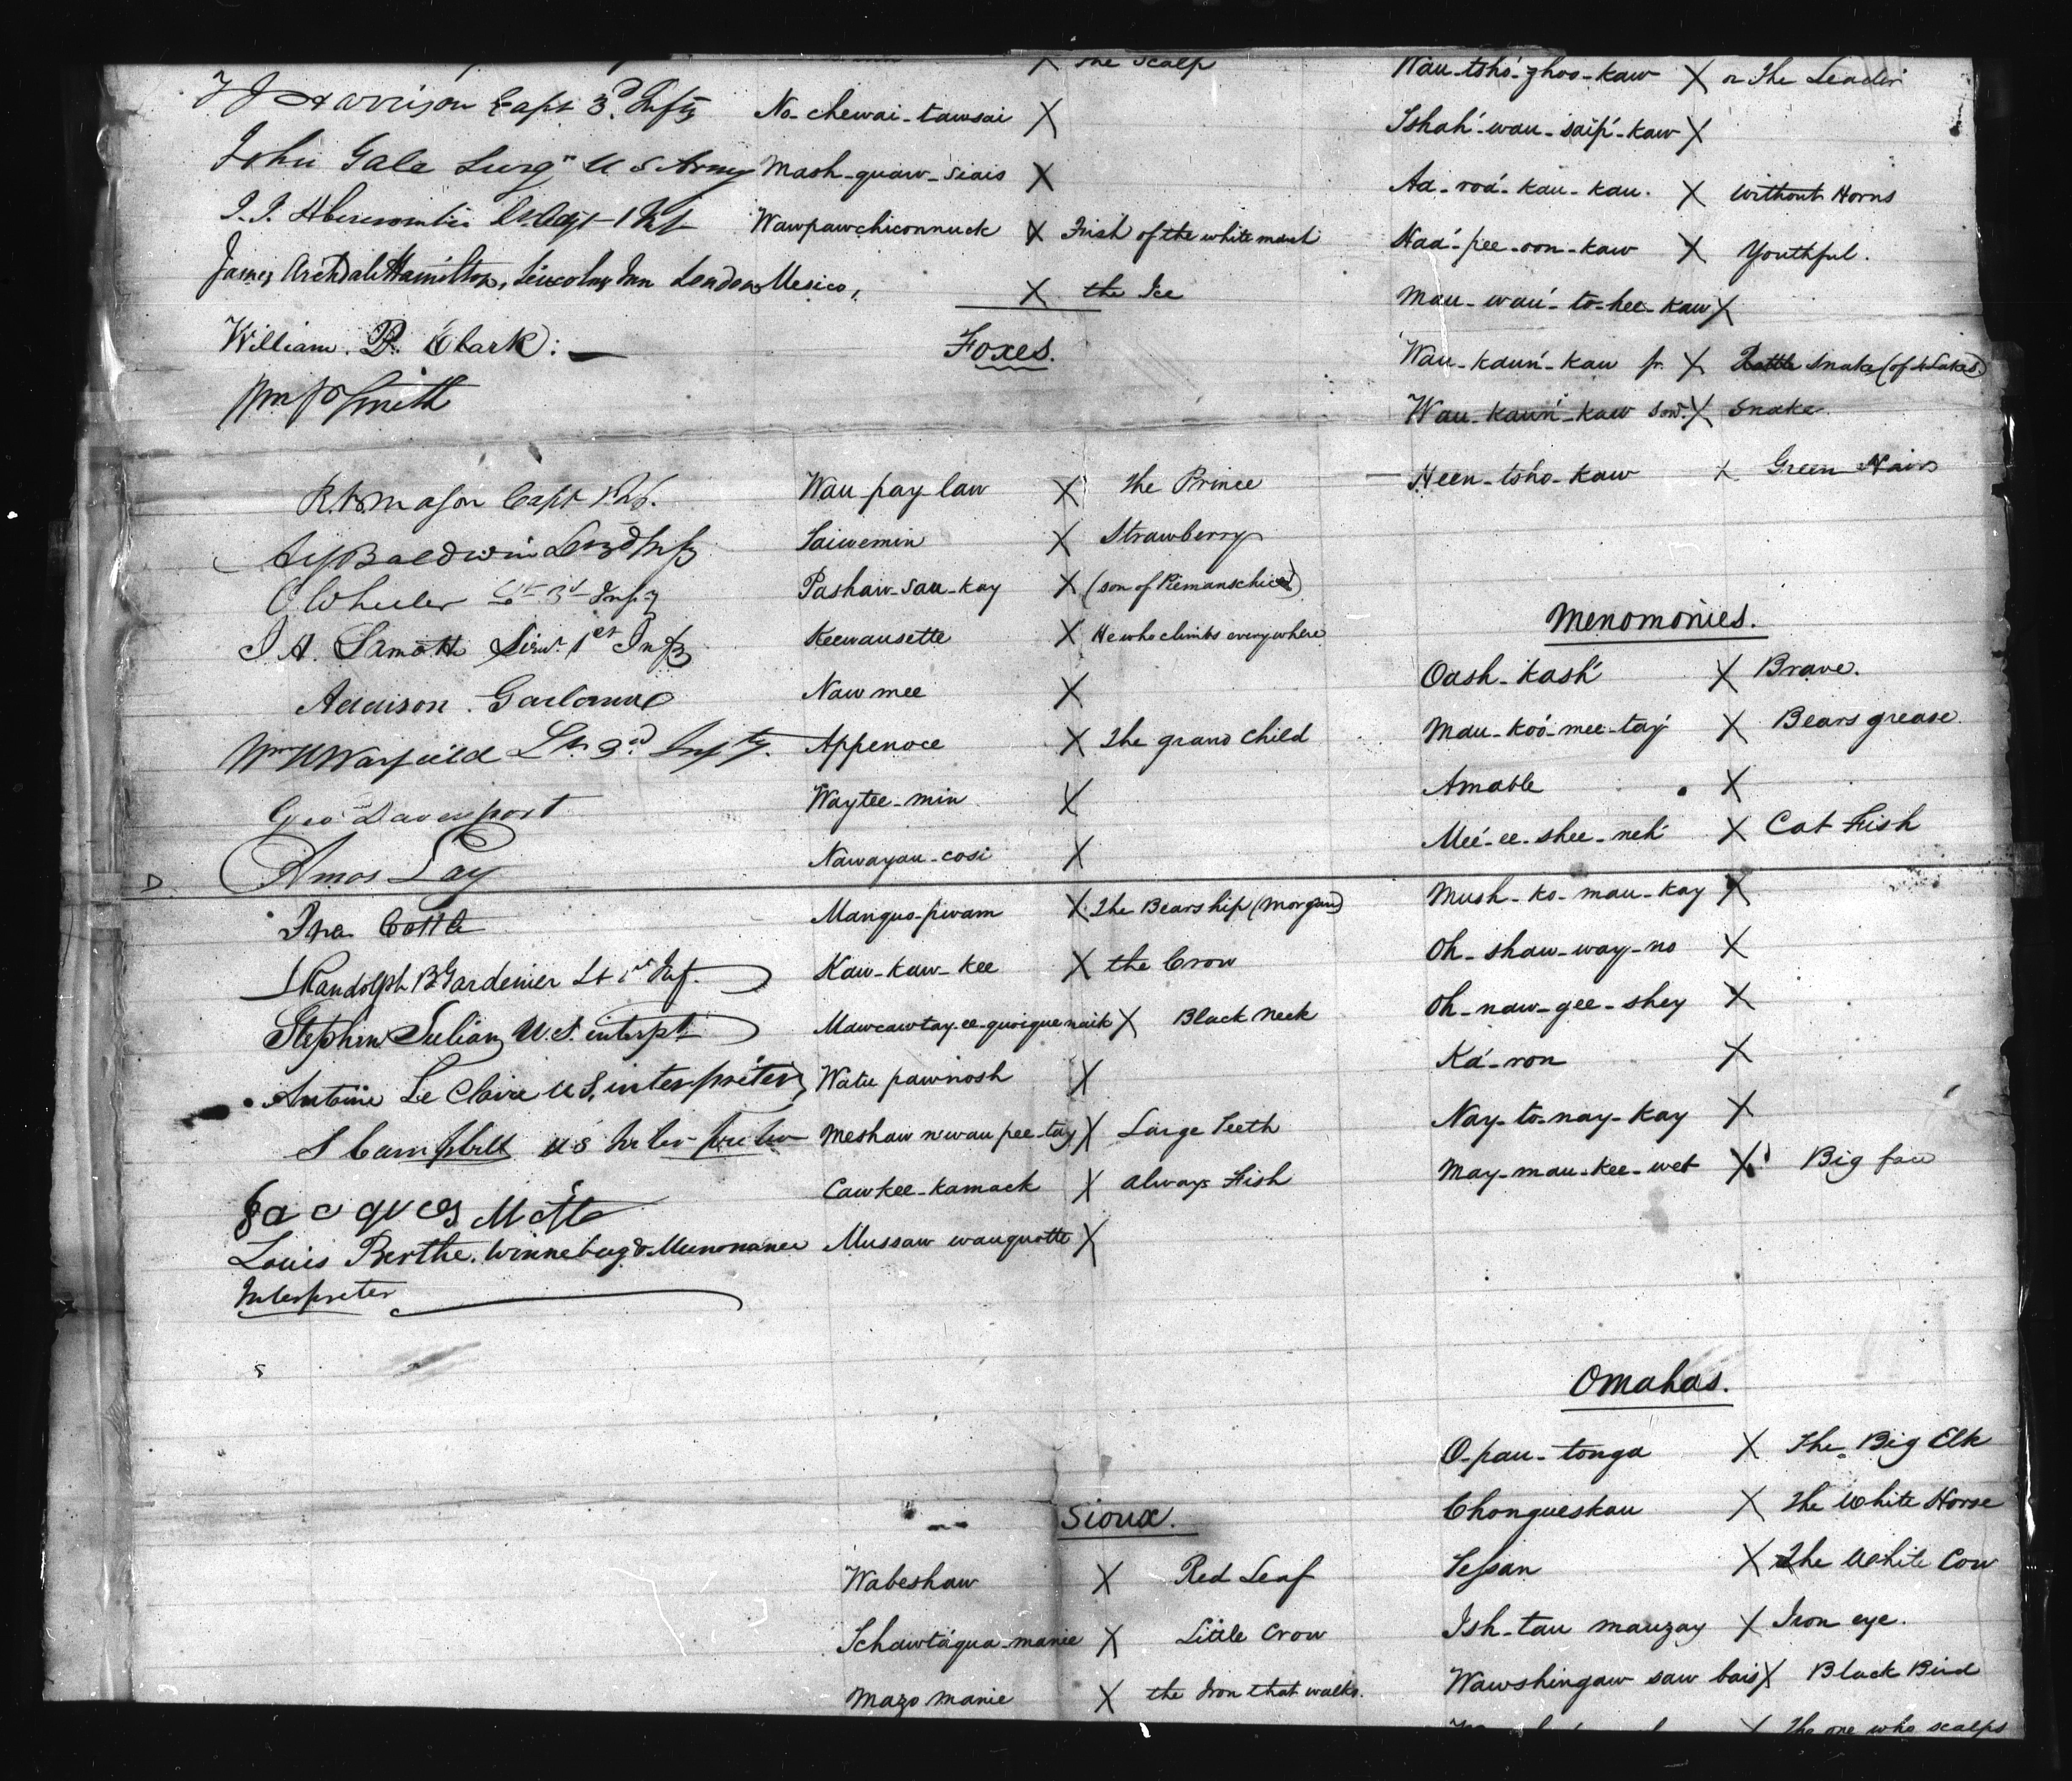 J J Harrison Capt 3d Infty
John Gale Surgn U S Army
J. J. Abercrombie Lt. & Adjt 1 Inf
James Archdale Hamilton, Lincolns Inn London
William. P. Clark:
Wm Smith
R. B. Mason Capt 1 Inf.
Baldwin Lt 3d Infy
O Wheeler Lt 3d Infy
J A. Lamotte Lieut 1st Infy
Addison. Garland
Wm N Wayfield Lt. 3rd Infty.
Geo Davenport
Amos Lay
D
Ira Cottle
Randolph B Gardenier Lt 1st Inf.
Stephen Julian, U.S. interpt
Antoine Le Claire U S, interpreter
S Campbell U S Interpreter
Jacques Mette
Louis Berthe, Winnebug & Menomanee
Interpreter
X the Scalp
No-chewai-tawsai X
Mash-quaw-siais X
Wawpawchiconnuck X Frish of the white mush
Mesico, X the Ice
Foxes.
Wau-pay-law X the Prince
Taiwemin X Strawberry
Pashaw-sau-kay X (son of Piemanschie)
Keewausette X He who climbs everywhere
Nawmee X
Appenoce X The grand Child
Waytee-min X
Nawayau-cosi X
Manquo-pwam X The Bears hip (Morgan)
Kaw-Kaw-Kee X the Crow
Mawcawtay-ee-quoiquenaik X Black Neck
Watu pawnosh X
Meshaw nwau pee-tay X Large Teeth
Cawkee-Kamack X always Fish
Mussaw wauquotte X
Sioux.
Wabeshaw X Red Leaf
Tchawtáqua-manie X Little Crow
Mazo manie X the Iron that walks.
Nau-tshó-zhoo-kaw X or The Leader
Tshah-wau-saip-kaw X
Aa-róa-kau-kau. X without Horns
Naá-pee-oon-kaw X Youthful.
Mau-waú-to-hee-kaw X
Wau-kaun-kau sr. X snake (of 4 Lakes)
Wau-kaun-kaw son. X Snake.
Heen-tsho-kaw X Green Hair
Menomonies.
Oash-kásh X Brave.
Mau-koó-mee-tay X Bears grease.
Amable X
Meé-ee-shee-neh X Cat Fish
Mush-ko-mau-kay X
Oh-shaw-way-no X
Oh-naw-gee-shey X
Ká-ron X
Nay-to-nay-kay X
May-mau-kee-wet X Big face
Omahas.
O-pau-tonga X The Big Elk
Chongueskau X The White Horse
Tessan X The White Cow
Ish-tau mauzay X Iron eye.
Wawshingaw saw bais X Black Bird
X The one who scalps